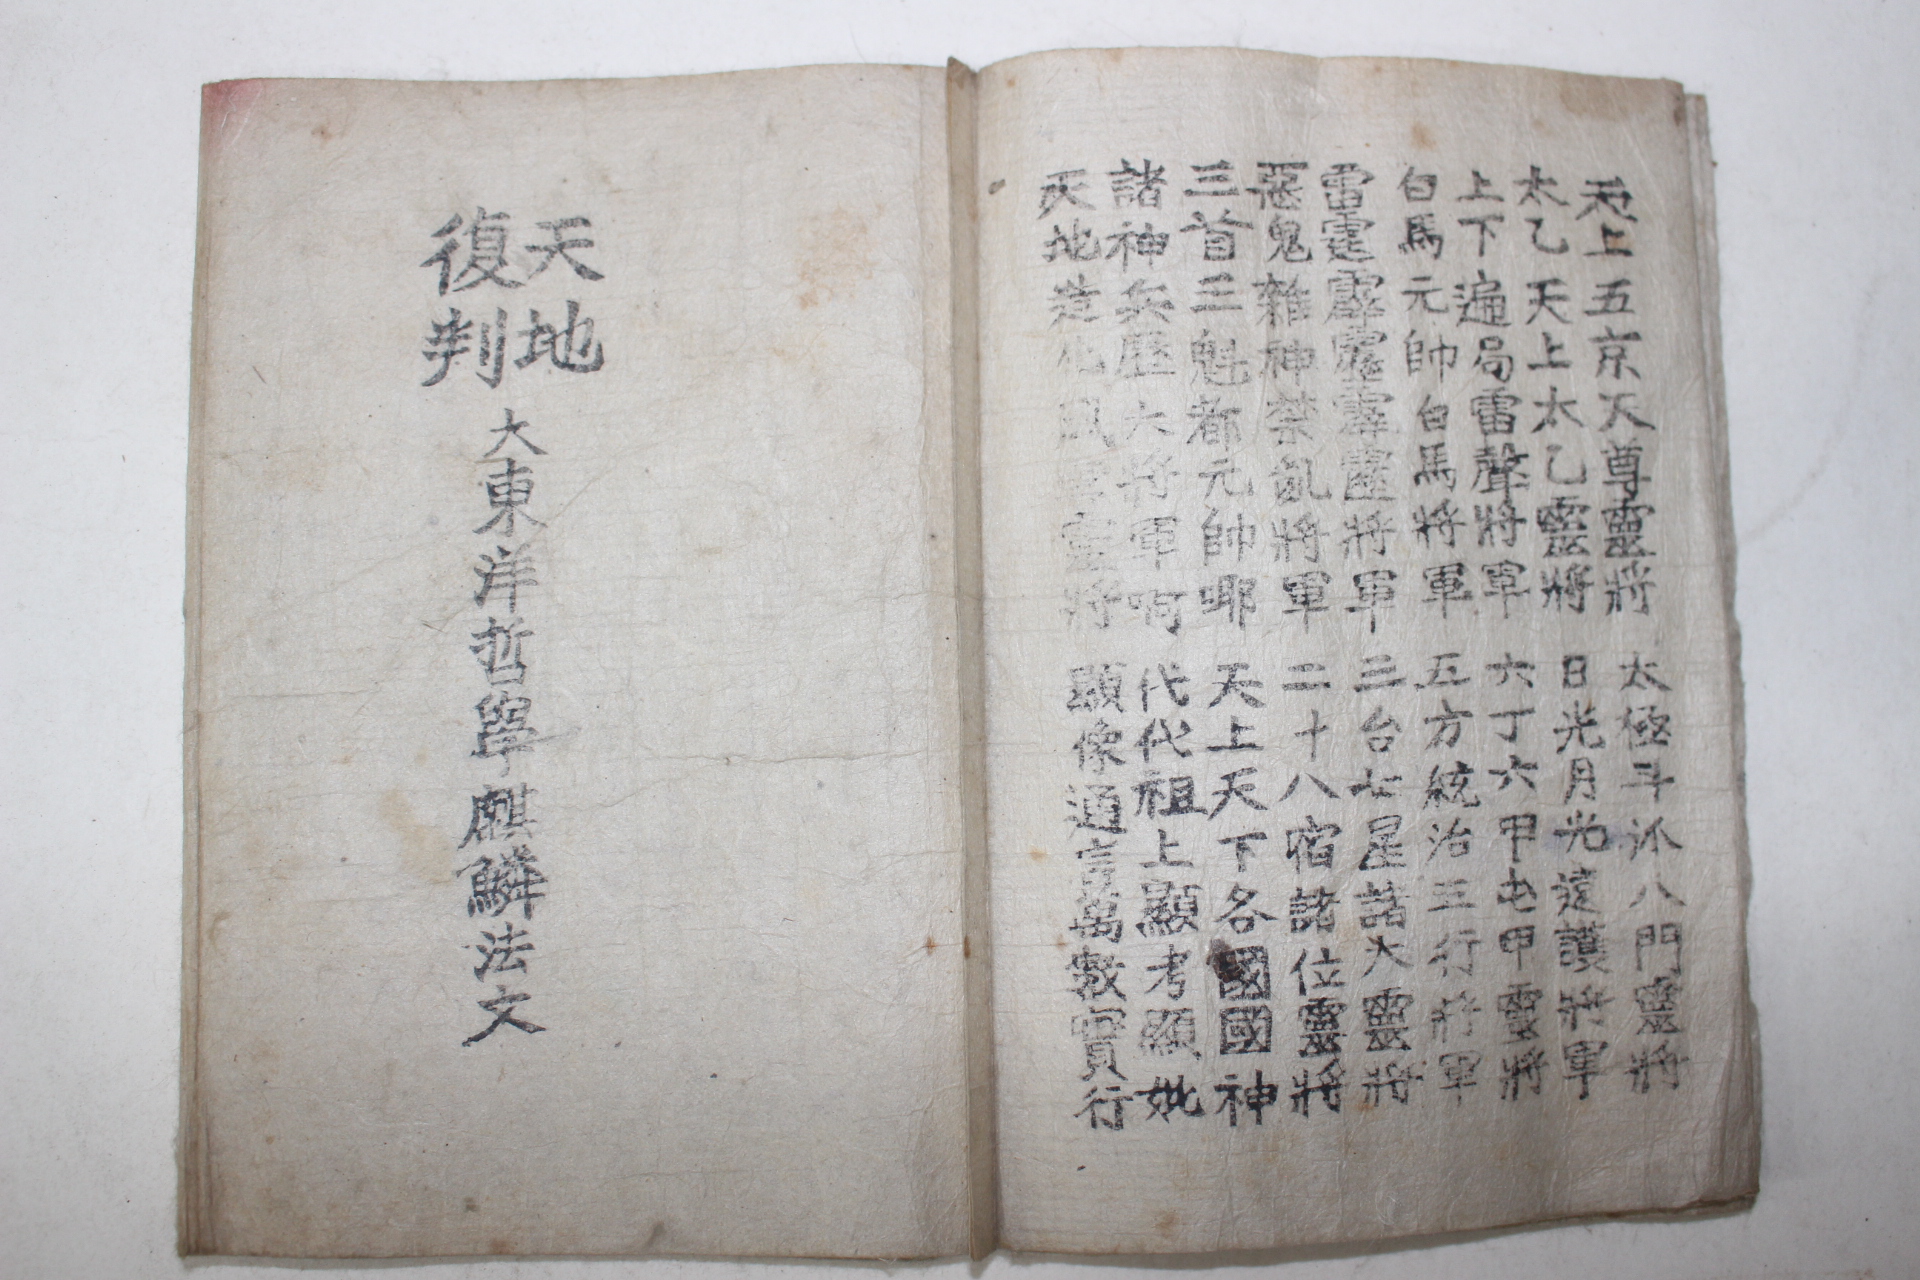 天上五京天尊靈將 太極斗 八門靈將
太乙天上太乙靈將 日光月光遠護將軍
上下遍局雷聲將軍 六丁六甲屯甲靈將
白馬元帥白馬將軍 五方統治五行將軍
雷霆霹靂霹靂將軍 三台七星諸大靈將
惡鬼雜神禁亂將軍 二十八宿諸位靈將
三首三魁都元帥耶 天上天下各國國神
諸神兵歷大將軍啊 代代祖上顯考顯妣
天地造化風雲靈將 顯像通言萬數實行
天地
復判
大東洋哲學麒麟法文